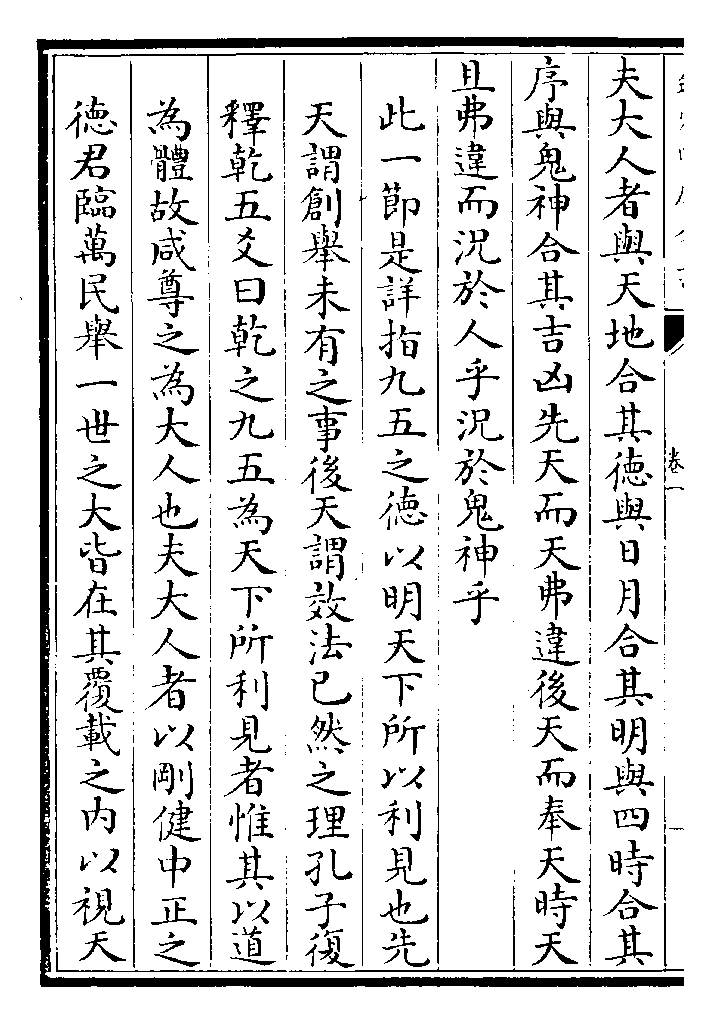 夫大人者與天地合其徳與日月合其明與四時合其
序與鬼神合其吉凶先天而天弗違後天而奉天時天
且弗違而況於人乎況於鬼神乎
此一節是詳指九五之徳以明天下所以利見也先
天謂創舉未有之事後天謂效法已然之理孔子復
釋乾五爻曰乾之九五為天下所利見者惟其以道
為體故咸尊之為大人也夫大人者以剛健中正之
徳君臨萬民舉一世之大皆在其覆載之内以視天
卷一